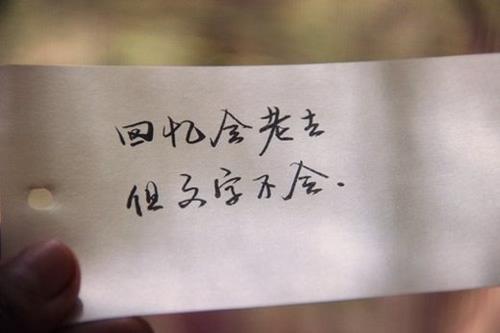 回忆会老去
但文字不会.